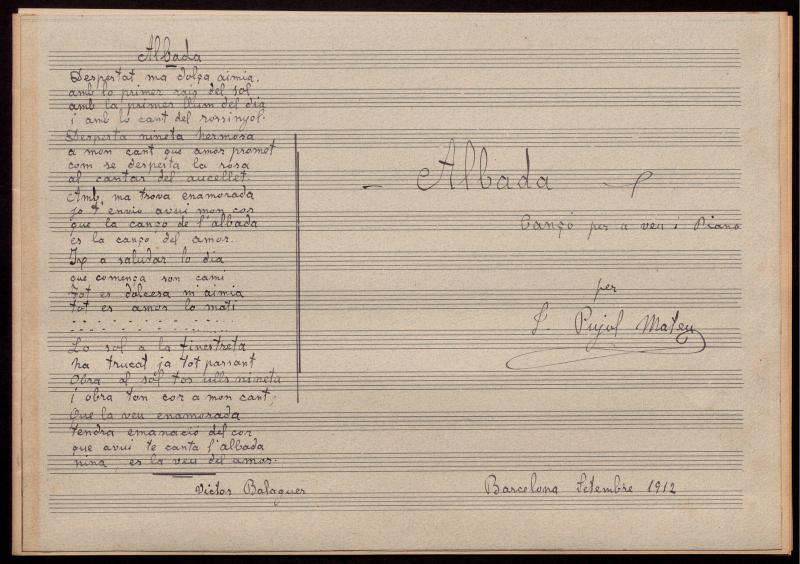 Albada
Despertat ma dolça aimia,
amb lo primer raig del sol
amb la primer llum del dia
i amb lo cant del rossinyol.
Desperta nineta hermosa
a mon cant que amor promet
com se desperta la rosa
al cantar del aucellet.
Amb, ma trova enamorada
jo t envio avui mon cor
que la canço de l'albada
es la canço del amor.
Ix a saludar lo dia
que comença son cami
Tot es dolcesa m'aimia
tot es amor lo mati
Lo sol a la finestreta
ha trucat ja tot passant
Obra al sol tos ulls nineta
i obra ton cor a mon cant;
Que la veu enamorada
tendra emanació del cor
que avui te canta l'albada
nina, es la veu del amor.
Victor Balaguer
- Albada
Cançó per a veu i Piano
per
F. Pujol Mateu
Barcelona Setembre 1912